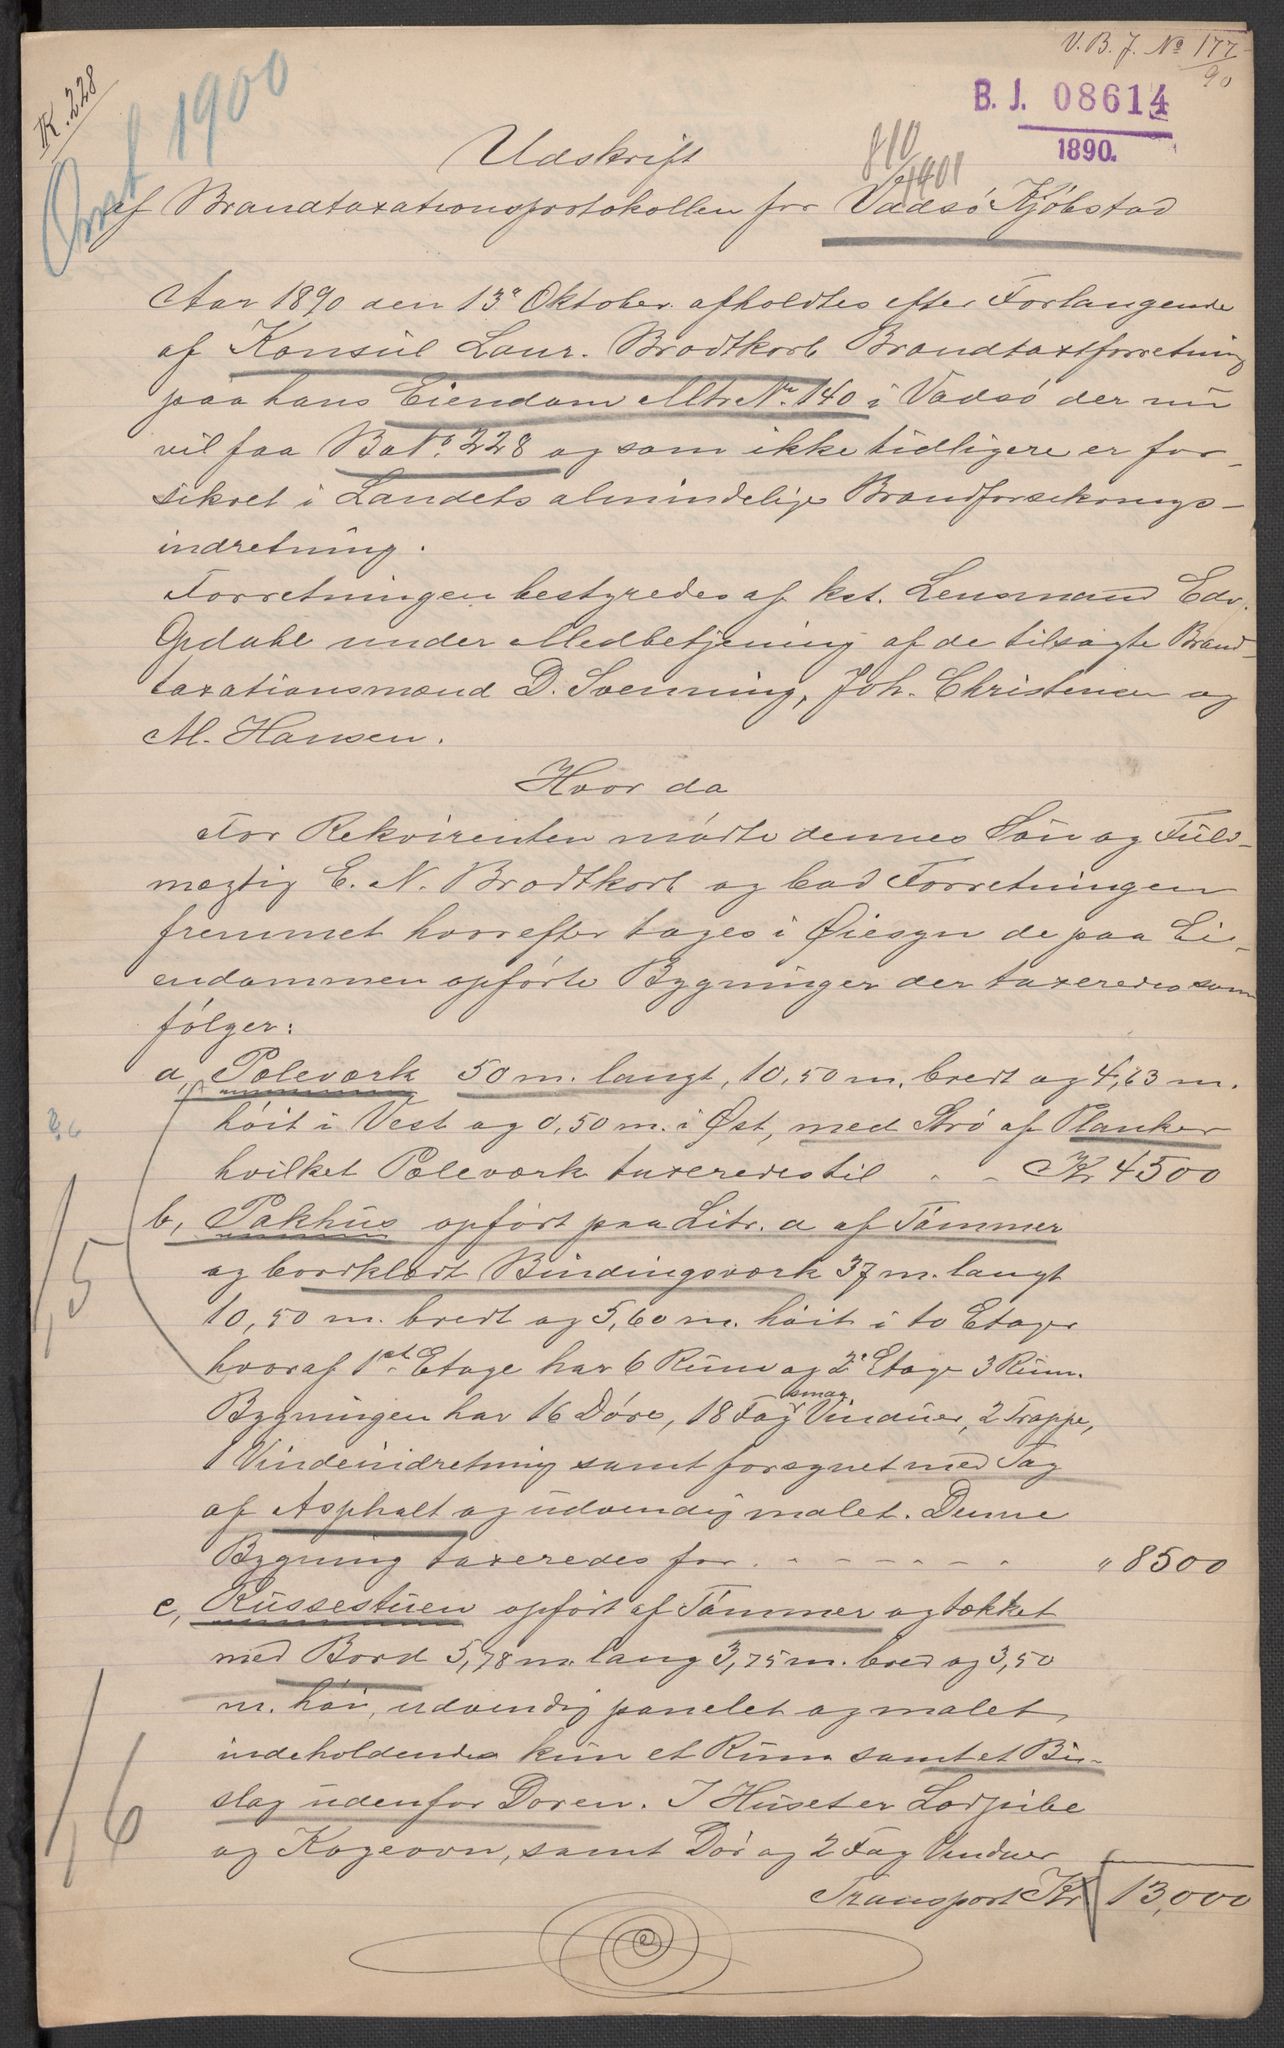 V. B. J. No 177/90
B. J. 08614
1890.
K. 228
1900
810
1901
Udskrift
af Brandtaxationsprotokollen for Vadsø Kjøbstad
Aar 1890 den 13de Oktober afholdtes efter Forlangende
af Konsul Laur. Brodtkorb Brandtaxtforretning
paa hans Eiendom Mtr. Nr. 140 i Vadsø der nu
vil faa B. No. 228 og som ikke tidligere er for-
sikret i Landets almindelige Brandforsikrings-
indretning.
Forretningen bestyredes af kst. Lensmand Edv.
Opdahl under Medbetjening af de tilsagte Brand-
taxationsmænd D. Svenning, Joh. Christensen og
M. Hansen.
Hvor da
For Rekvirenten mødte dennes Søn og Fuld-
mægtig E. N. Brodtkorb og bad Forretningen
fremmet hvorefter toges i Øiesyn de paa Ei-
endommen opførte Bygninger der taxeredes som
følger:
a, Pæleværk 50 m. langt, 10,50 m. bredt og 4,63 m.
høit i Vest og 0,50 m. i Øst, med Strø af Planker
hvilket Pæleværk taxeredes til - - Kr 4500
b, Pakhus opført paa Litr. a af Tømmer
og bordklædt Bindingsværk 37 m. langt
10,50 m. bredt og 5,60 m. høit i to Etager
hvoraf 1ste Etage har 6 Rum og 2de Etage 3 Rum.
Bygningen har 16 Døre, 18 Fag smaa Vinduer, 2 Trappe,
1 Vindeindretning samt forsynet med Tag
af Asphalt og udvendig malet. Denne
Bygning taxeredes for - - - - - - - " 8500
c, Russestuen opført af Tømmer og tækket
med Bord 5,78 m. lang 3,75 m. bred og 3,50
m. høi, udvendig panelet og malet,
indeholdende kun et Rum samt et Bi-
slag udenfor Døren. I Huset er Lodpibe
og Kogeovn, samt Dør og 2 Fag Vinduer
Transport Kr. 13,000
1,5
1,6